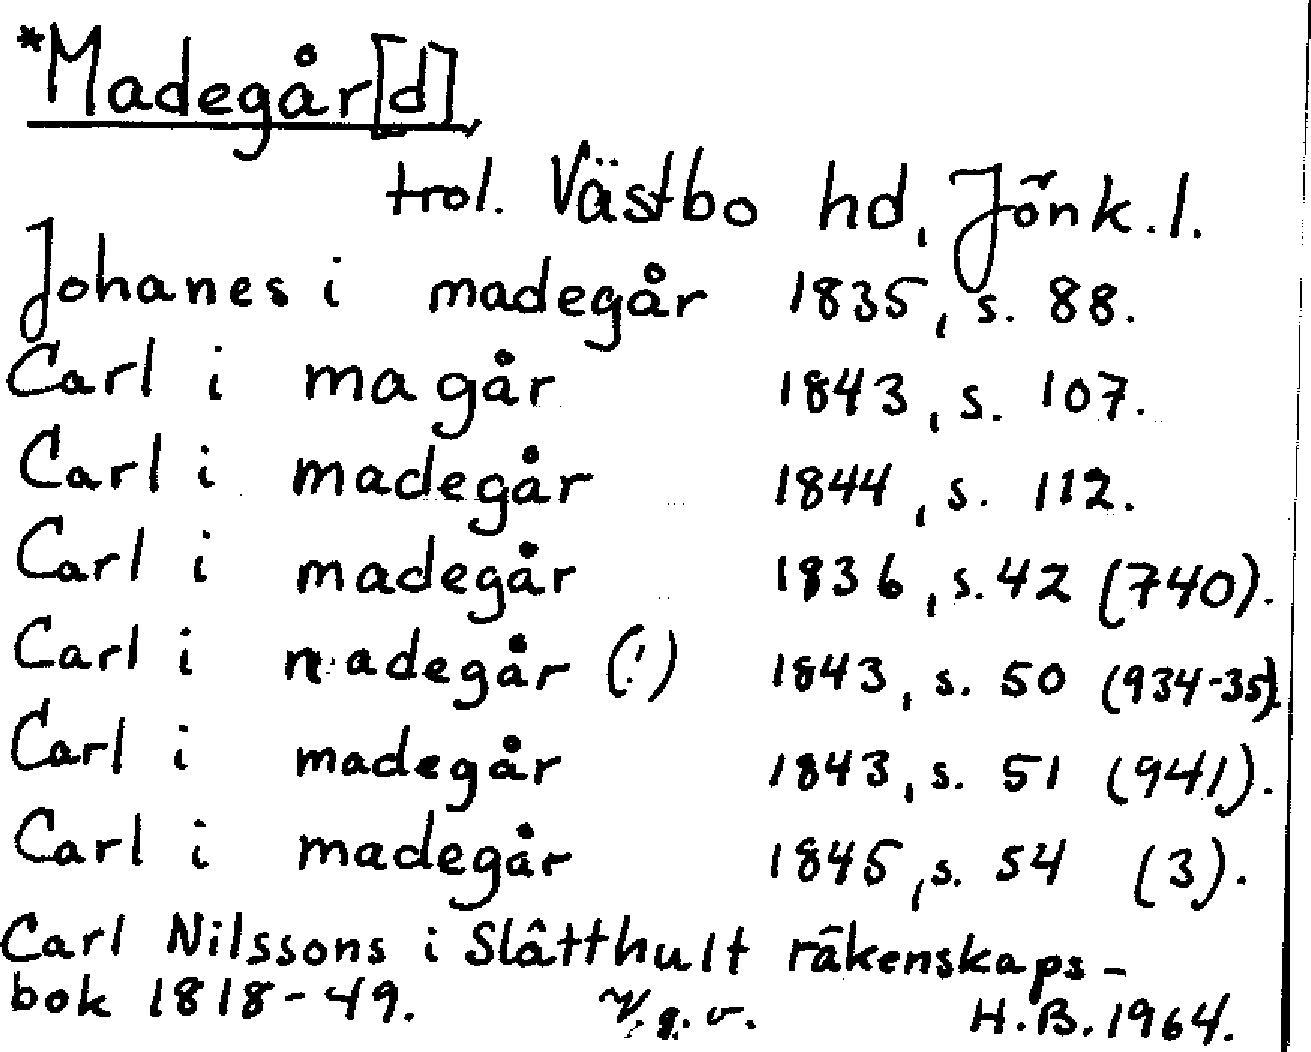 *Madegår[d]
trol. Västbo hd, Jönk.l.
Johanes i madegår 1835, s. 88.
Carl i ma går 1843, s. 107.
Carl i madegår 1844, s. 112.
Carl i madegår 1836, s. 42 (740).
Carl i nadegår (!) 1843, s. 50 (934-35).
Carl i madegår 1843, s. 51 (941).
Carl i madegår 1845, s. 54 (3).
Carl Nilssons i Slätthult räkenskaps-
bok 1818-49. H.B. 1964.